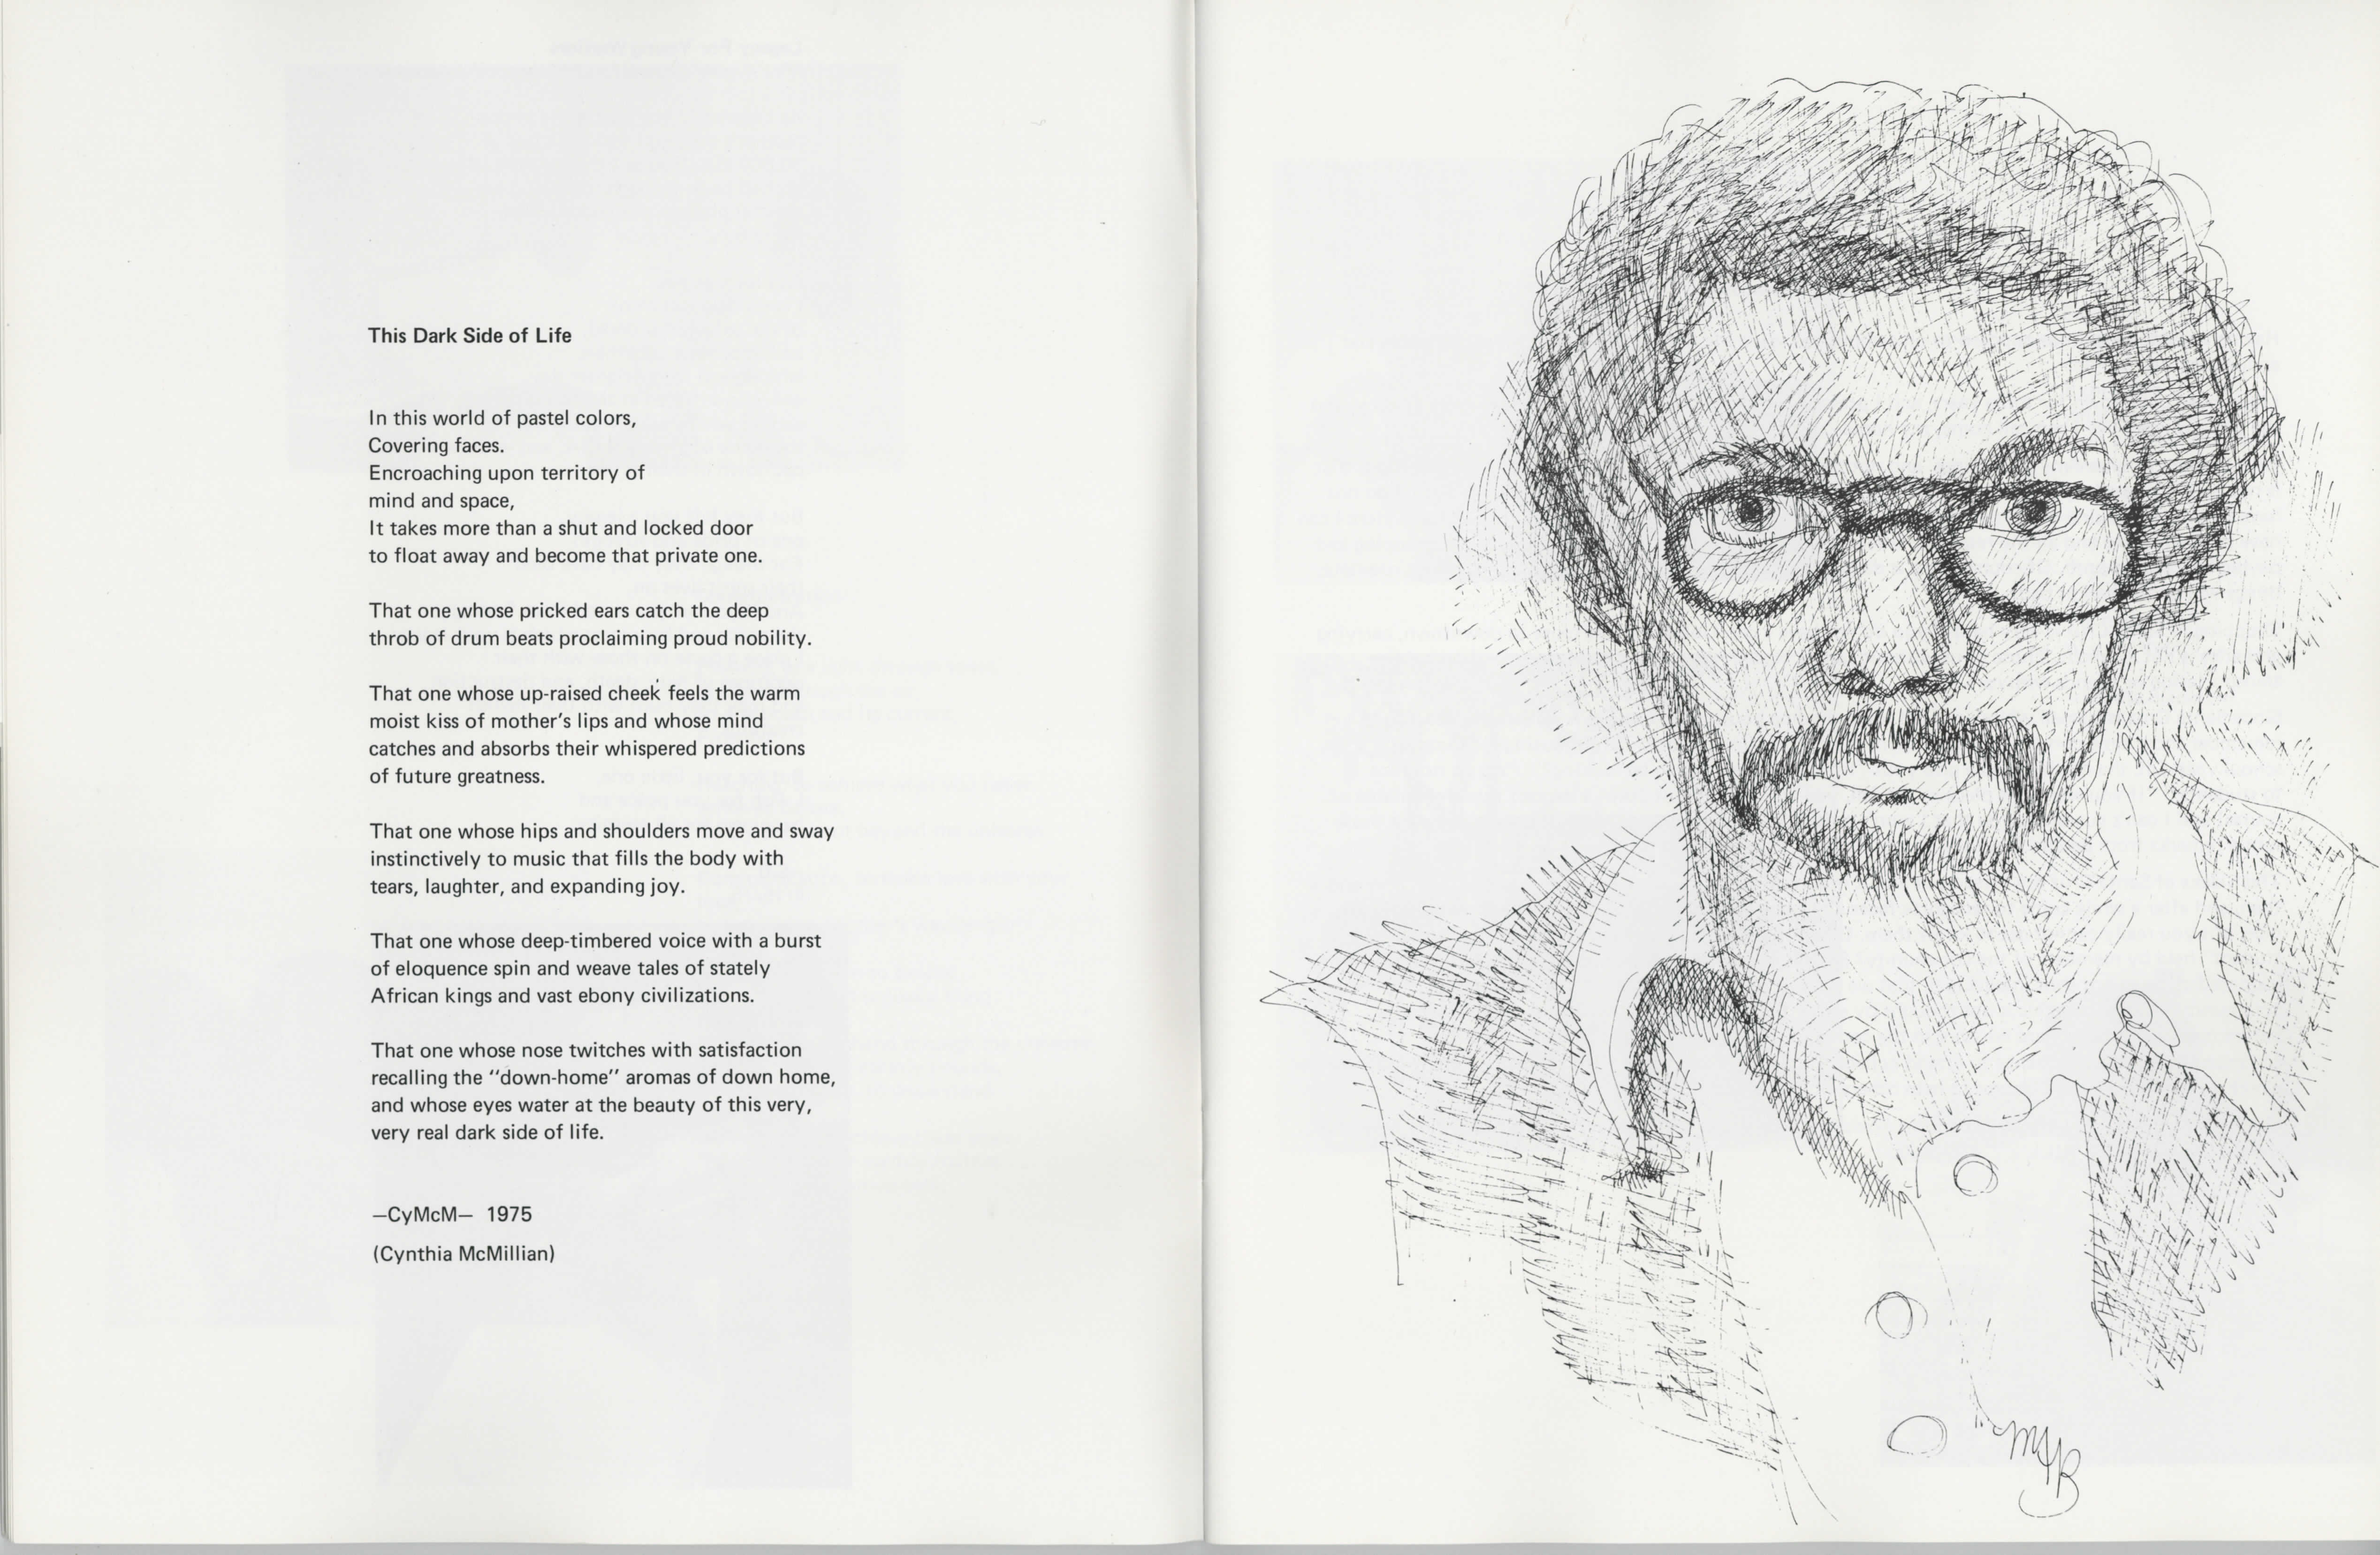 This Dark Side of Life
In this world of pastel colors,
Covering faces.
Encroaching upon territory of
mind and space,
It takes more than a shut and locked door
to float away and become that private one.
That one whose pricked ears catch the deep
throb of drum beats proclaiming proud nobility.
That one whose up-raised cheek feels the warm
moist kiss of mother's lips and whose mind
catches and absorbs their whispered predictions
of future greatness.
That one whose hips and shoulders move and sway
instinctively to music that fills the body with
tears, laughter, and expanding joy.
That one whose deep-timbered voice with a burst
of eloquence spin and weave tales of stately
African kings and vast ebony civilizations.
That one whose nose twitches with satisfaction
recalling the "down-home" aromas of down home,
and whose eyes water at the beauty of this very,
very real dark side of life.
—CyMcM— 1975
(Cynthia McMillian)